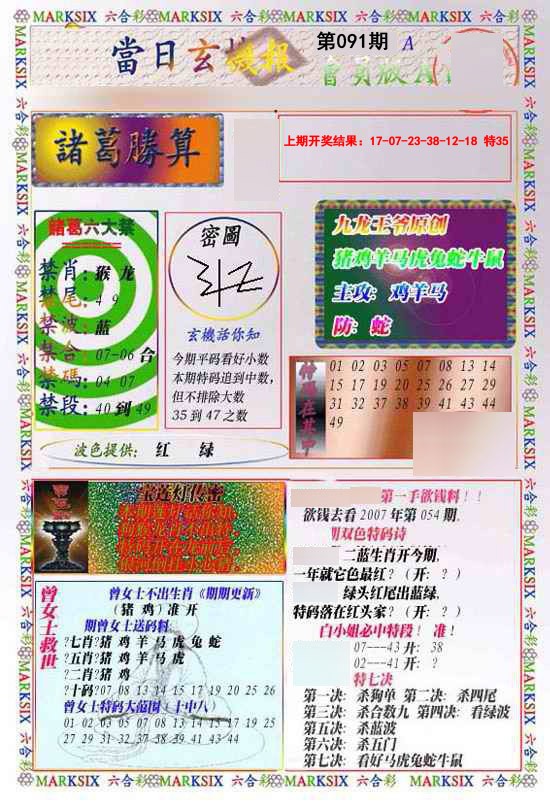 MARKSIX 六合彩 MARKSIX 六合彩 MARKSIX 六合彩 MARKSIX 六合彩
當日玄機報
第091期 A
會員版A
諸葛勝算
上期开奖结果：17-07-23-38-12-18 特35
諸葛六大禁
禁肖：猴 龙
禁尾：4 9
禁波：蓝
禁合：07-06 合
禁碼：04 07
禁段：40 到 49
密圖
玄機話你知
今期平码看好小数
本期特码追到中数，
但不排除大数
35 到 47 之数
九龙王爷原创
猪鸡羊马虎兔蛇牛鼠
主攻：鸡羊马
防：蛇
01 02 03 05 07 08 13 14
15 17 19 20 25 26 27 29
31 32 37 38 39 41 43 44
49
波色提供： 红 绿
宝莲灯传密
曾女士救世
曾女士不出生肖《期期更新》
(猪 鸡) 准 开
期曾女士送码料：
?七肖?猪 鸡 羊 马 虎 兔 蛇
?五肖?猪 鸡 羊 马 虎
?二肖?猪 鸡
?十码?07 08 13 14 15 17 19 20 25 26
曾女士特码大范围（十中八）
01 02 03 05 07 08 13 14 15 17 19 25
27 29 31 32 37 38 39 41 43 44
第一手欲钱料！！
欲钱去看 2007 年第 054 期.
期双色特码诗
二蓝生肖开今期.
一年就它色最红？（开：？）
绿头红尾出蓝绿.
特码落在红头家？（开：？）
白小姐必中特段！ 准！
07---43 开： 38
02---41 开： ？
特七决
第一决：杀狗单 第二决：杀四尾
第三决：杀合数九 第四决：看绿波
第五决：杀蓝波
第六决：杀五门
第七决：看好马虎兔蛇牛鼠
MARKSIX 六合彩 MARKSIX 六合彩 MARKSIX 六合彩 MARKSIX 六合彩